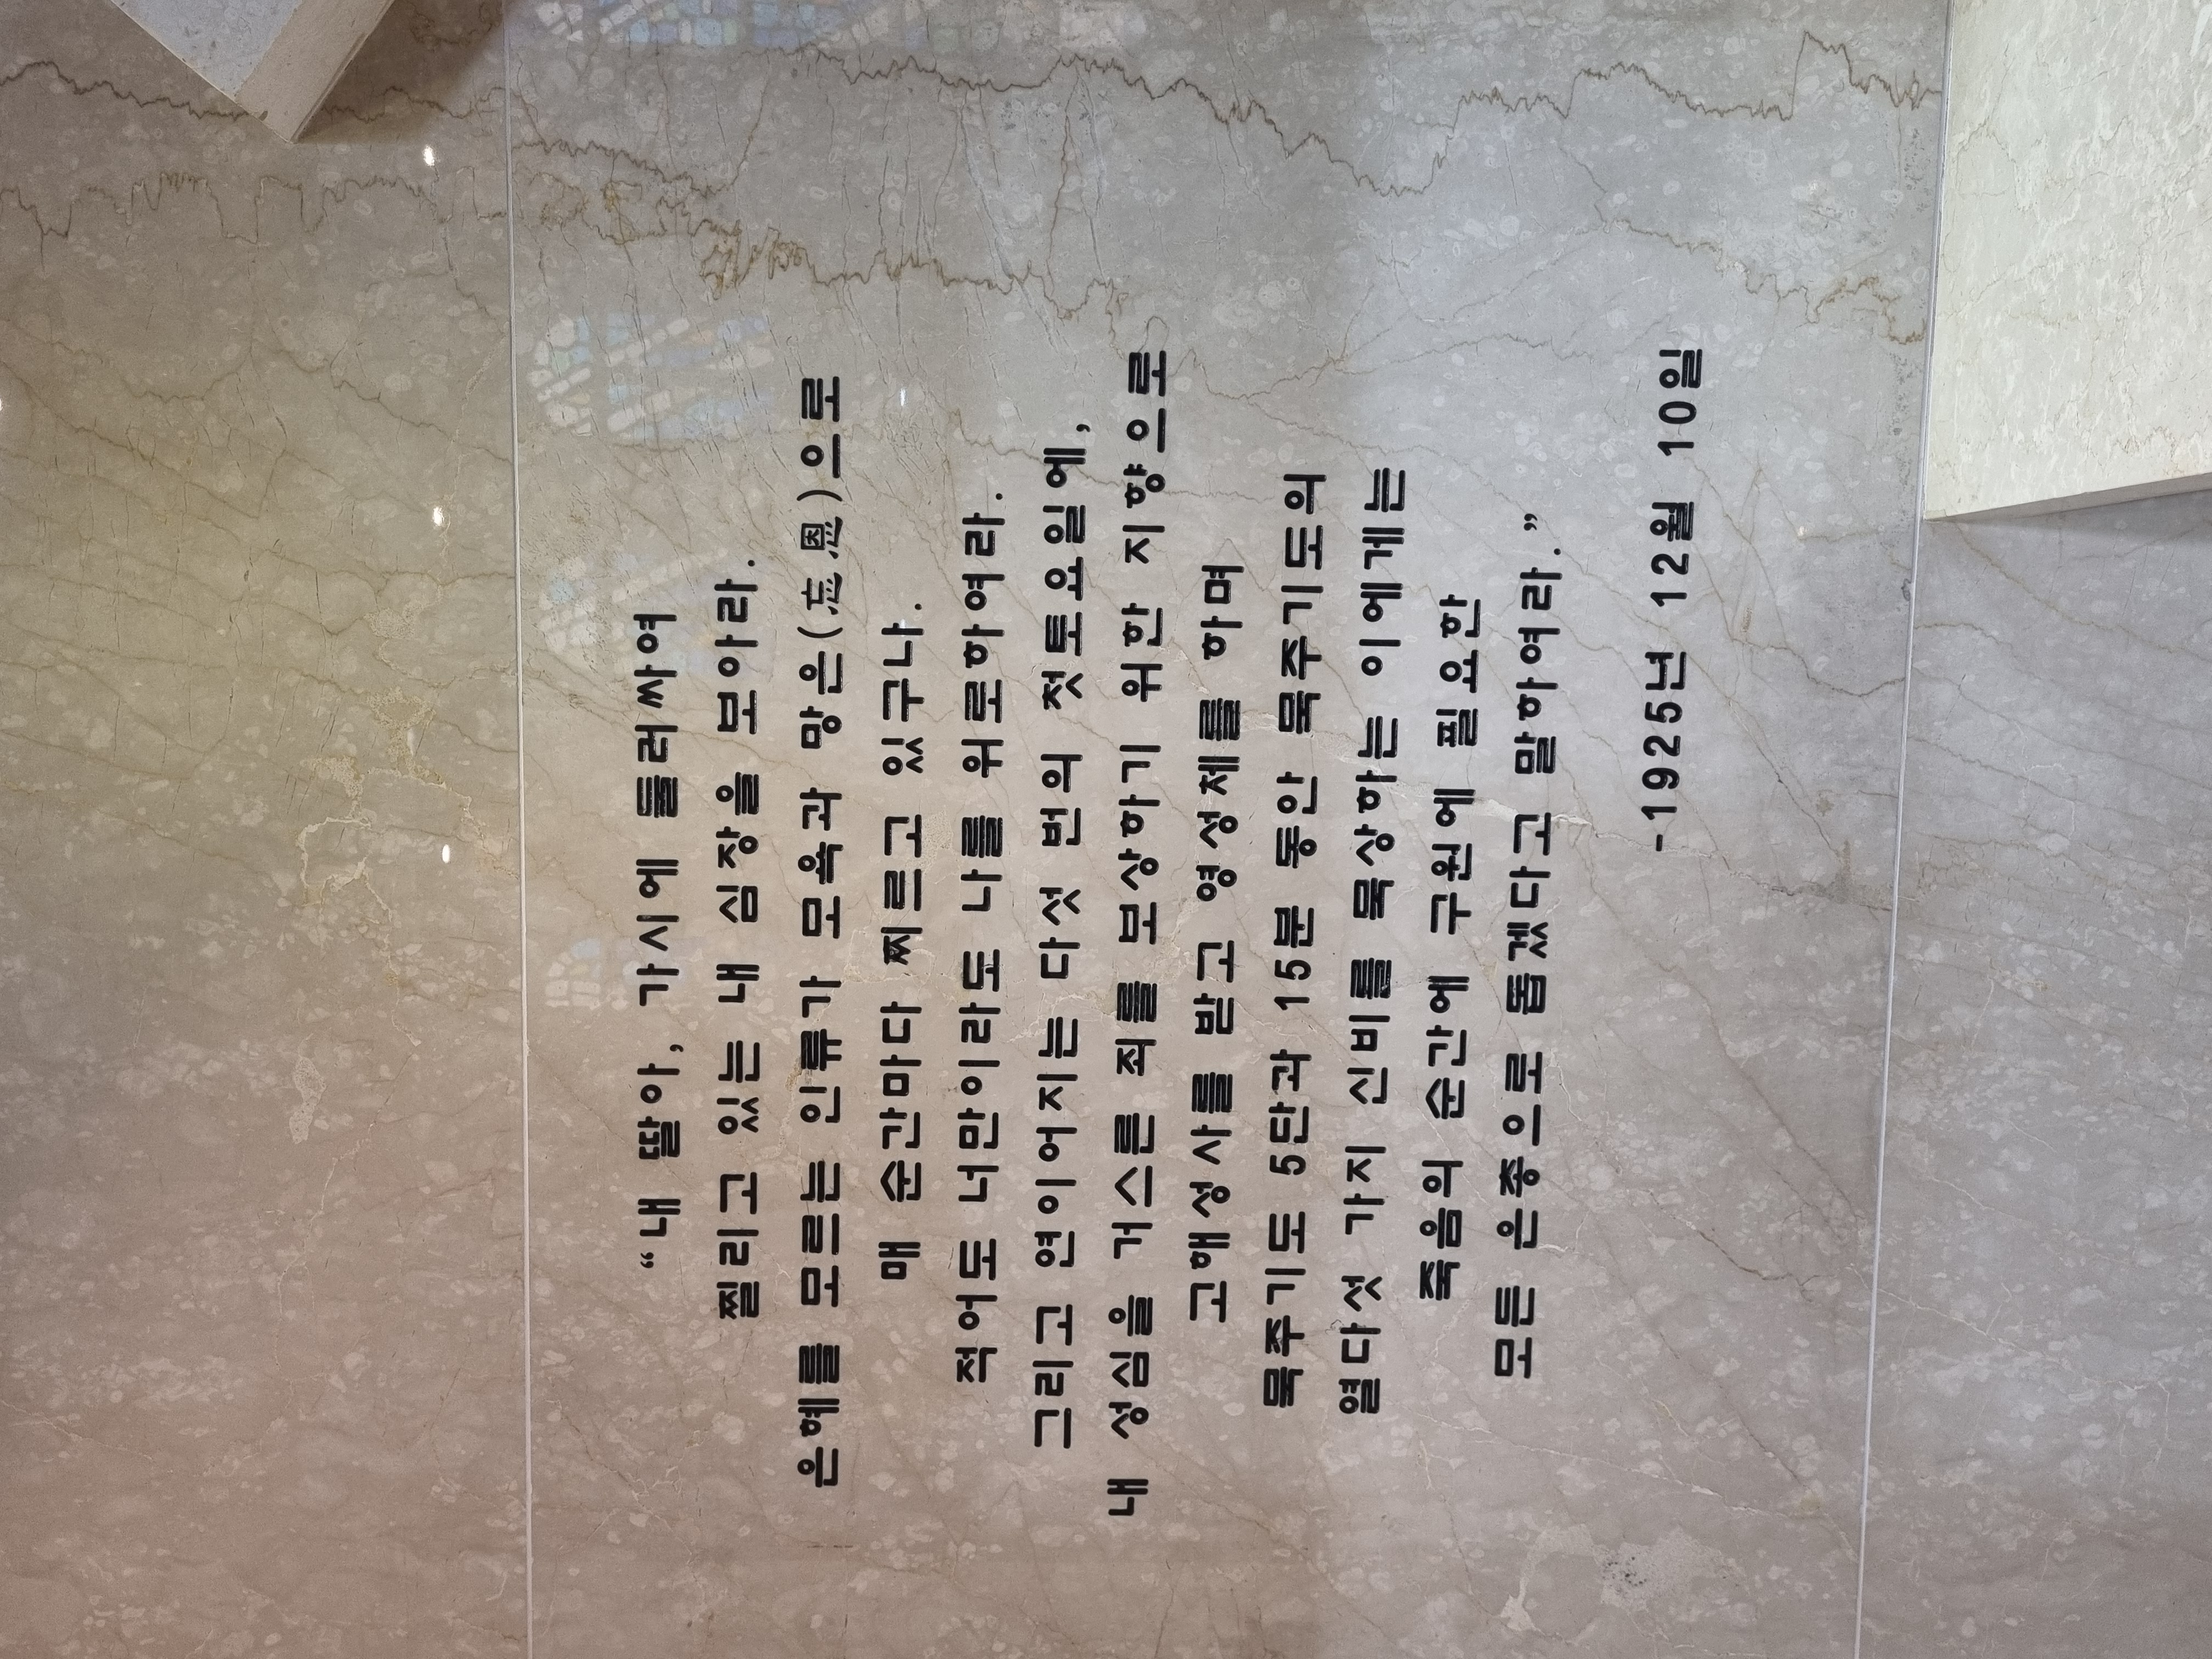 “내 딸아, 가시에 둘러싸여
찔리고 있는 내 심장을 보아라.
은혜를 모르는 인류가 모욕과 망은(忘恩)으로
매 순간마다 찌르고 있구나.
적어도 너만이라도 나를 위로하여라.
그리고 연이어지는 다섯 번의 첫토요일에,
내 성심을 거스른 죄를 보상하기 위한 지향으로
고해성사를 받고 영성체를 하며
묵주기도 5단과 15분 동안 묵주기도의
열다섯 가지 신비를 묵상하는 이에게는
죽음의 순간에 구원에 필요한
모든 은총으로 돕겠다고 말하여라.”
-1925년 12월 10일